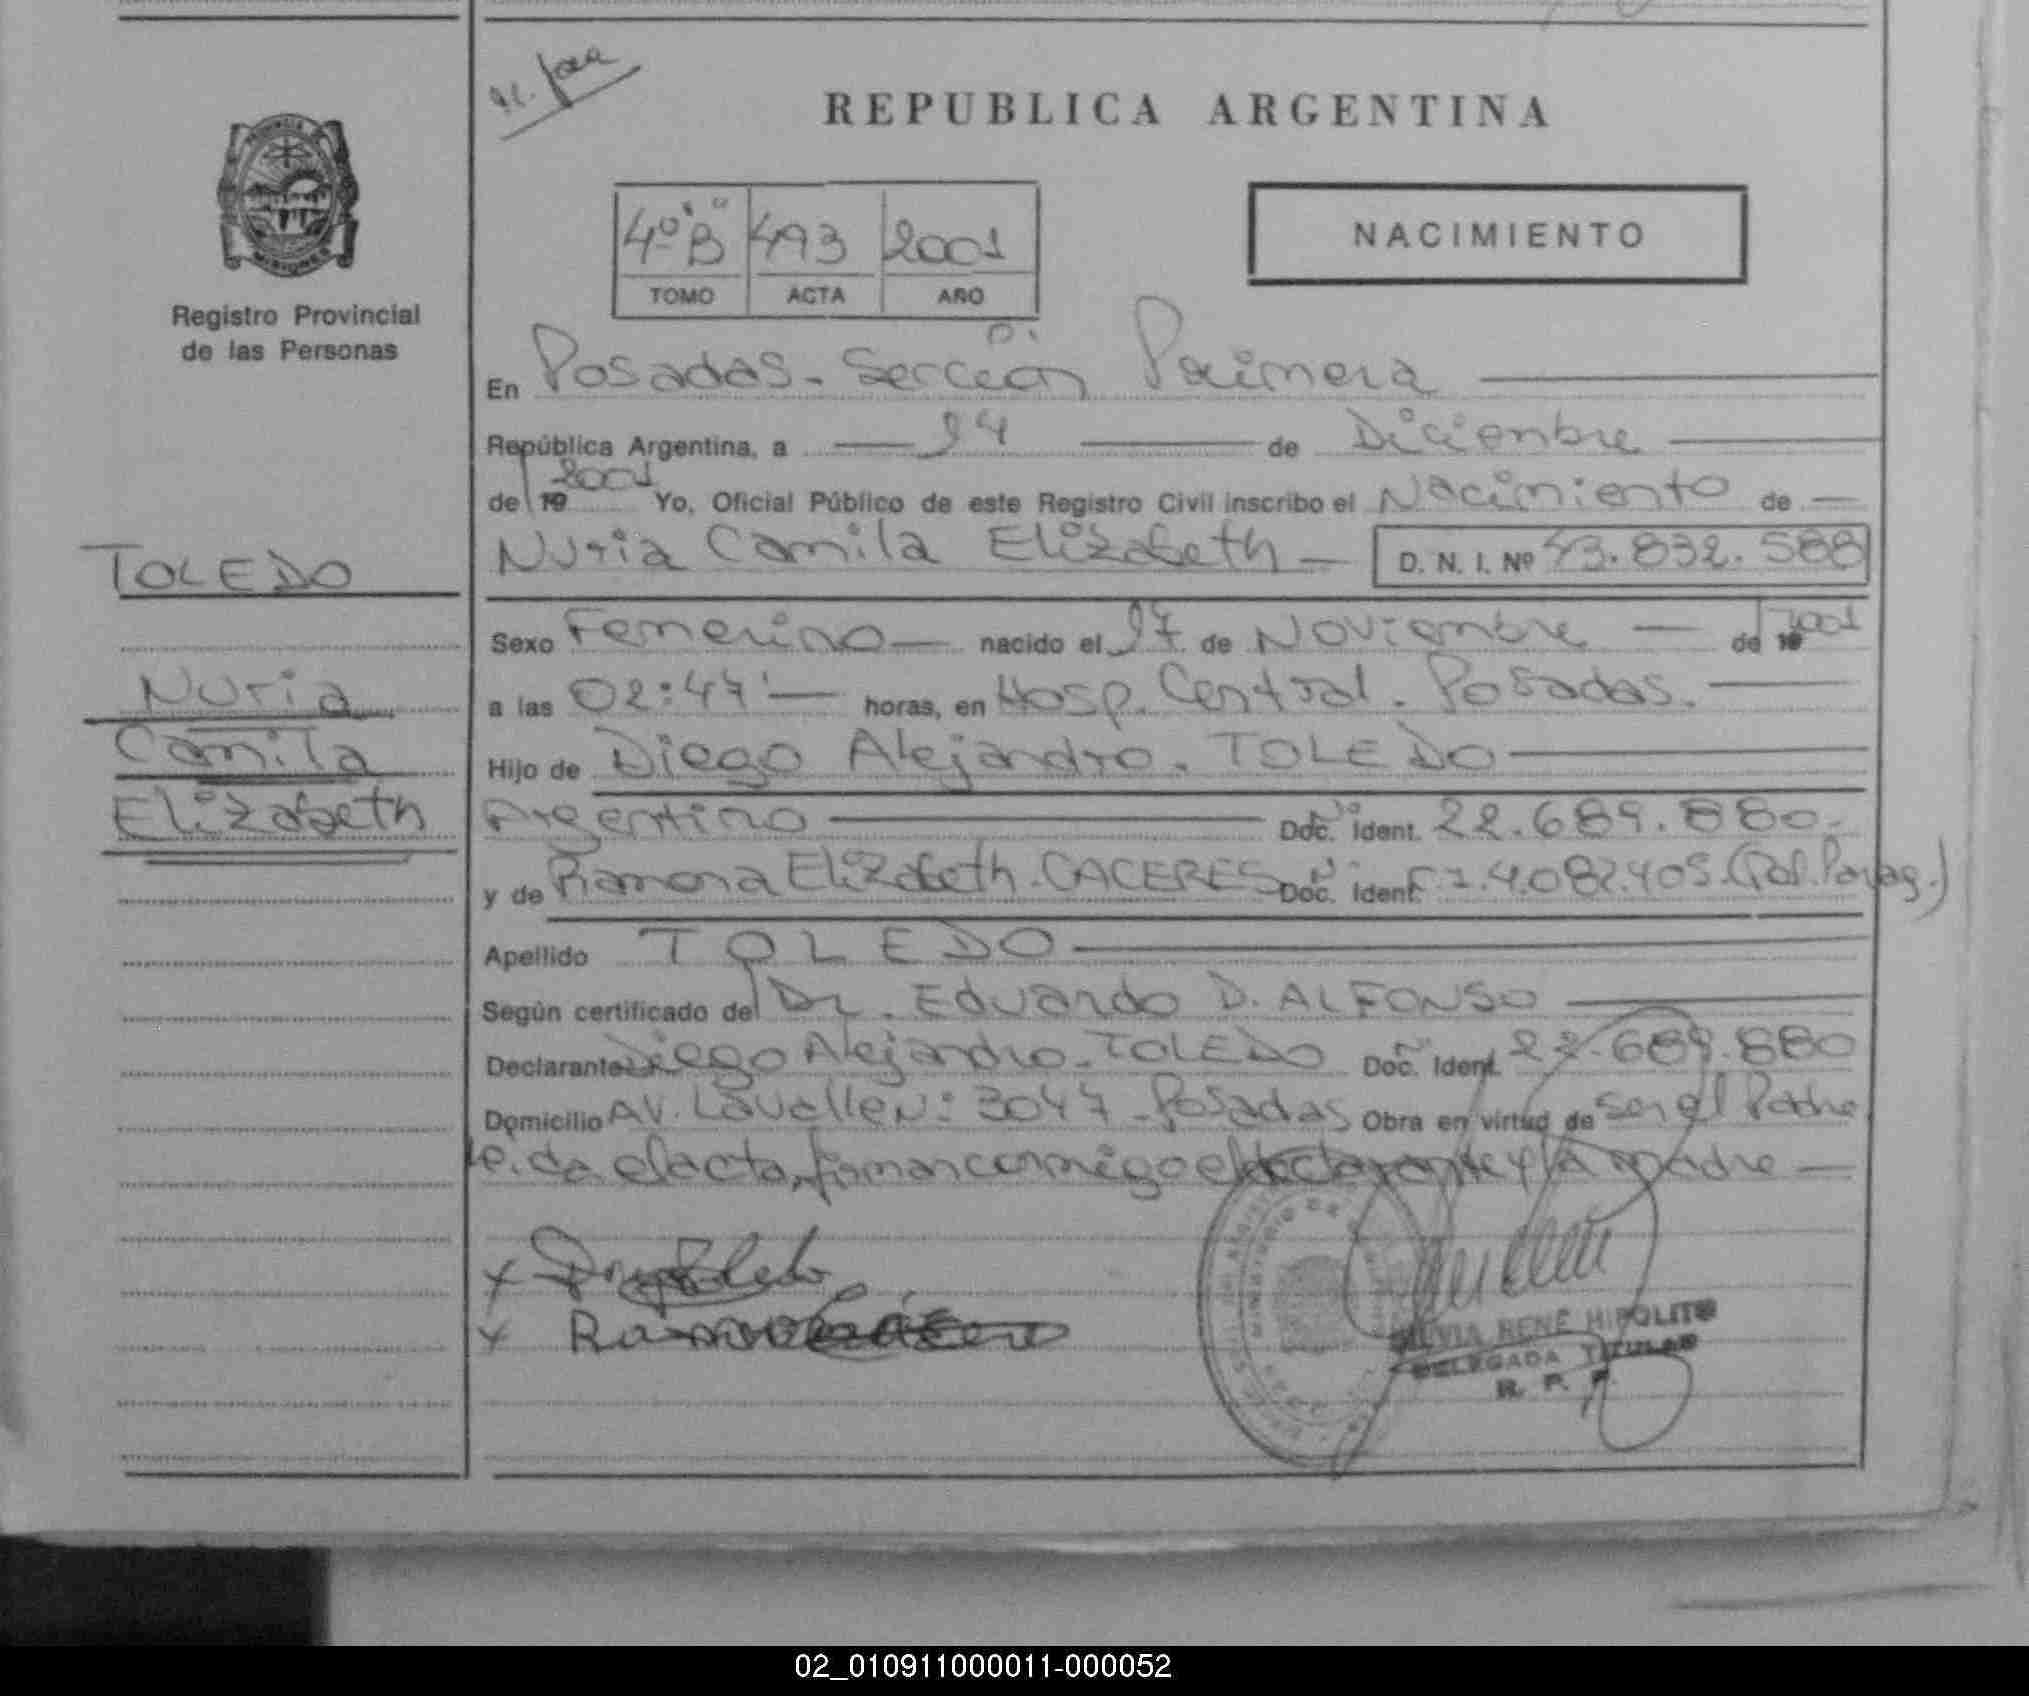 REPUBLICA ARGENTINA
PROVINCIA DE
MISIONES
Registro Provincial
de las Personas
4º "B" 493 2001
TOMO ACTA AÑO
NACIMIENTO
En Posadas - Sección Primera
República Argentina, a 14 de Diciembre
de 19 2001 Yo, Oficial Público de este Registro Civil inscribo el Nacimiento de
Nuria Camila Elizabeth D. N. I. Nº 43.832.588
TOLEDO
Sexo Femenino nacido el 17 de Noviembre de 19 2001
Nuria
a las 02:47' horas, en Hosp. Central. Posadas.
Camila
Hijo de Diego Alejandro. TOLEDO
Elizabeth
Argentino Doc. Ident. Nº 22.689.880.
y de Ramona Elizabeth. CACERES Doc. Ident. Nº 4.082.405. (Pol. Parag.)
Apellido TOLEDO
Según certificado del Dr. Eduardo D. ALFONSO
Declarante Diego Alejandro. TOLEDO Doc. Ident. Nº 22.689.880
Domicilio AV. Lavalle Nº: 3047 - Posadas Obra en virtud de ser el Padre
Leida el acta, firman conmigo el declarante y la madre
SILVIA RENÉ HIPOLITO
DELEGADA TITULAR
R. P. P.
02_010911000011-000052